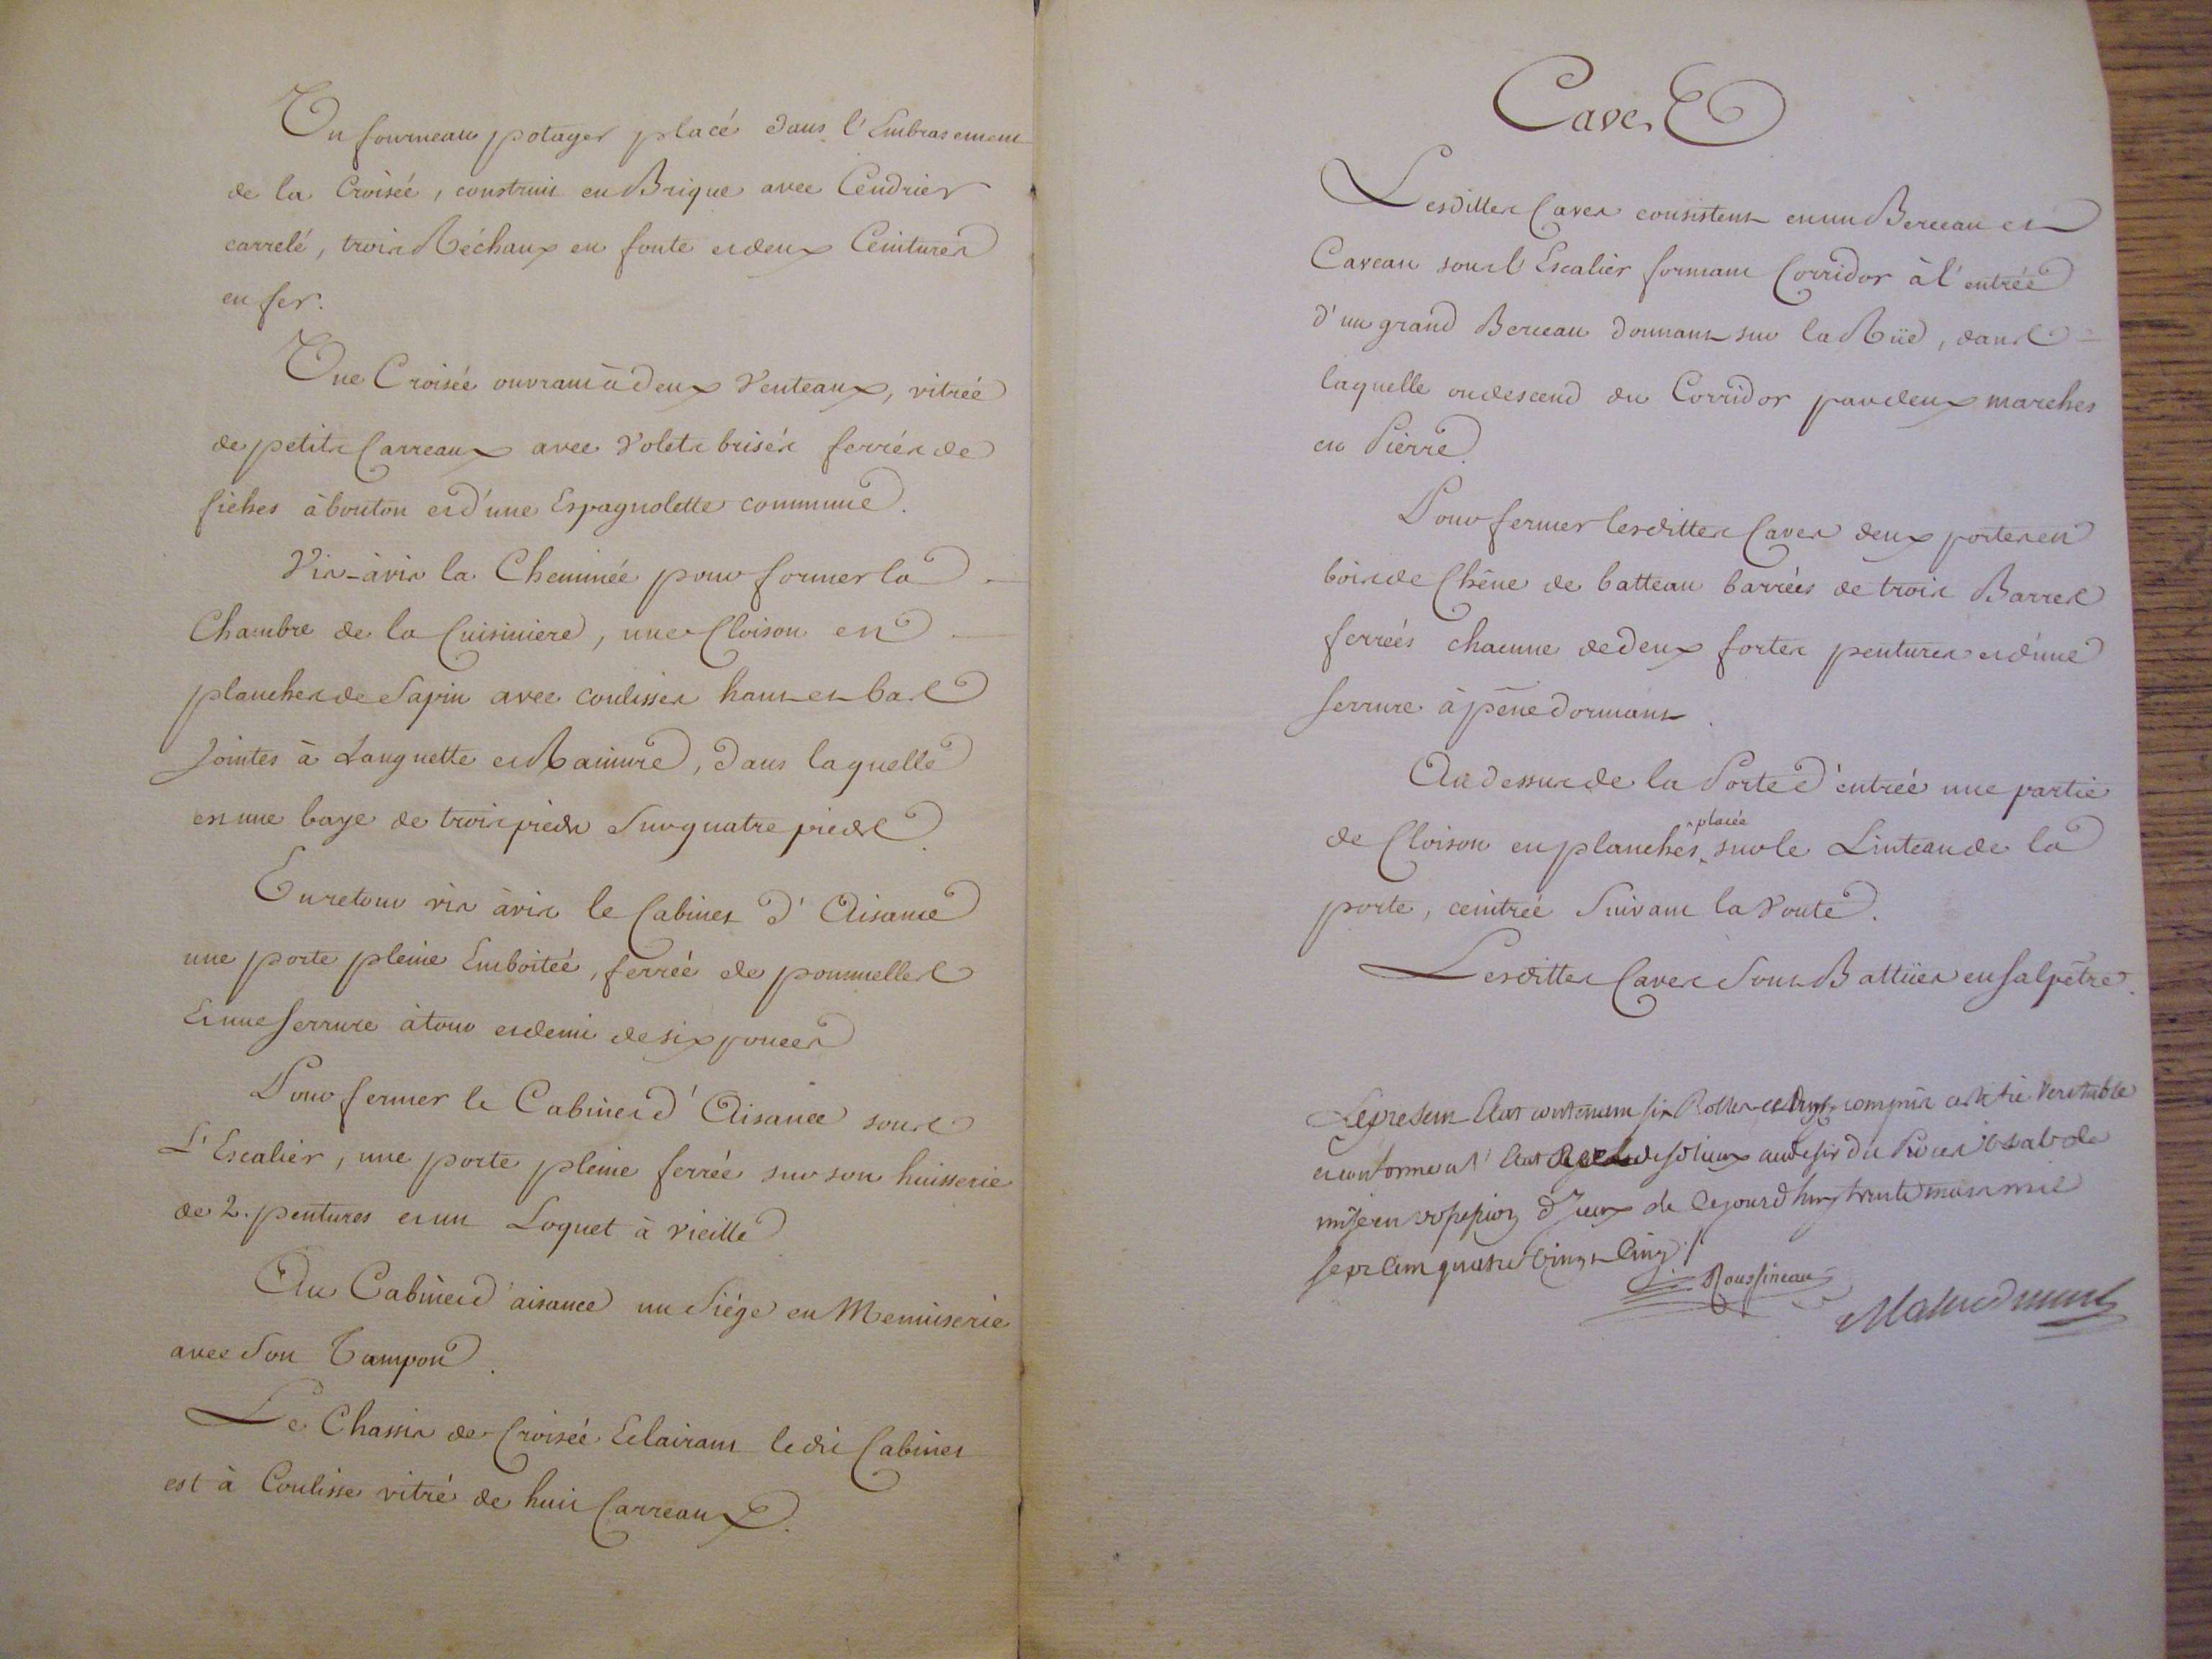 Un fourneau potager placé dans l'Embrasement
de la Croisée, construit en Brique avec Cendrier
carrelé, trois Réchaux en fonte et deux Ceintures
en fer.
Une Croisée ouvrant à deux Venteaux, vitrée
de petits Carreaux avec Volets brisés ferrés de
fiches à bouton et d'une Espagnolette commune.
Vis-àvis la Cheminée pour former la
Chambre de la Cuisiniere, une Cloison en
planches de Sapin avec coulisses haut et bas
Jointes à Languette et Rainure, dans laquelle
est une baye de trois pieds Sur quatre pieds.
En retour vis àvis le Cabinet d'Aisance
une porte pleine Emboitée, ferrée de poummelles
Et une serrure à tour et demi de six pouces
Pour fermer le Cabinet d'Aisance sous
L'Escalier, une porte pleine ferrée sur son huisserie
de 2. pentures et un Loquet à vieille
Au Cabinet d'aisance un Siége en Menuiserie
avec Son Tampon.
Le Chassis de Croisée Eclairant ledit Cabinet
est à Coulisse vitré de huit Carreaux.
Caves
Lesdittes Caves consistent en un Berceau et
Caveau sous l'Escalier formant Corridor à l'entrée
d'un grand Berceau donnant sur la Rüe, dans
laquelle on descend du Corridor par deux marches
en Pierre.
Pour fermer lesdittes Caves deux portes en
bois de Chêne de batteau barrées de trois Barres
ferrées chacune de deux fortes pentures et d'une
serrure à pêne dormant.
Au dessus de la Porte d'entrée une partie
de Cloison en planches placée sur le Linteau de la
porte, ceintrée Suivant la Voute.
Lesdittes Caves Sont Battües en Salpêtre.
Le present Etat contenant six Rolles et compris certifié veritable
et conforme a l'Etat des lieux au desir du
mise en possession d'Iceux de Cejourdhuy trente mars mil
sept Cent quatre Vingt Cinq./.
Roussineau